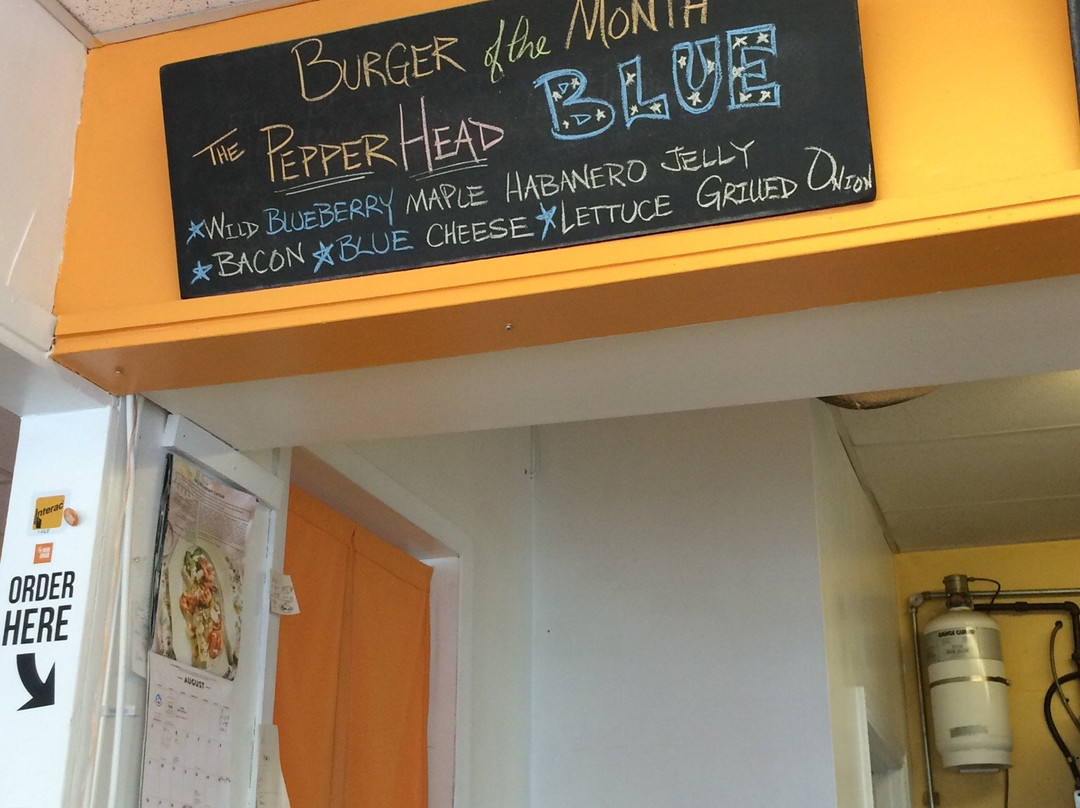 BURGER of the MONTH
THE PEPPER HEAD BLUE
WILD BLUEBERRY MAPLE HABANERO JELLY
BACON BLUE CHEESE LETTUCE GRILLED ONION
Interac
ORDER
HERE
AUGUST